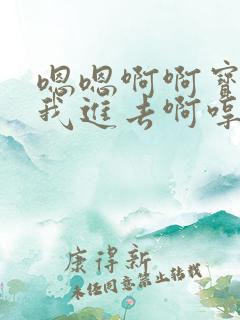 嗯嗯啊啊宝
我进去啊啍
康得新
未经同意禁止转载